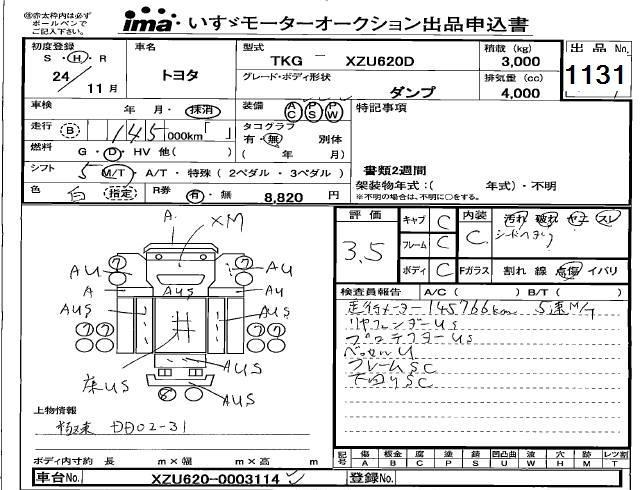 ※赤太枠内は必ず
ボールペンで
ご記入下さい。
ima いすゞモーターオークション出品申込書
初度登録 車名 型式 積載 (kg) 出品No.
S・H・R
24 11月
トヨタ TKG - XZU620D 3,000
グレード・ボディ形状 排気量 (cc)
ダンプ 4,000
1131
車検 年 月・抹消 装備 AC PS PW 特記事項
走行 B 145 000km「 」 タコグラフ
有・無 別体
( 年 月)
燃料 G・D・HV 他( )
シフト 5 M/T・A/T・特殊 (2ペダル・3ペダル)
書類2週間
色 白 (指定) R券 有・無 8,820 円
架装物年式:( 年式)・不明
※不明の場合は、不明に○をする。
評価 3.5
キャブ C 内装 C 汚れ 破れ ヤニ スレ
フレーム C
ボディ C Fガラス 割れ 線 点傷 イバリ
A. XM
⑦ ⑦
AU AU
A AUS Au
AUS AUS
⑦ ⑦
床US AUS
AUS
検査員報告 A/C( ) B/T( )
走行メーター145766km 5速M/T
リヤフェンダーUS
プロテクターUS
ベッセルU
フレームSC
下回りSC
上物情報
極東 DD02-31
ボディ内寸約 長 m×幅 m×高 m
記号 傷 板金 腐 塗 錆 凹 凸 曲 波 穴 跡 レツ割
A B C P S U W H M T
車台No. XZU620-0003114 登録No.